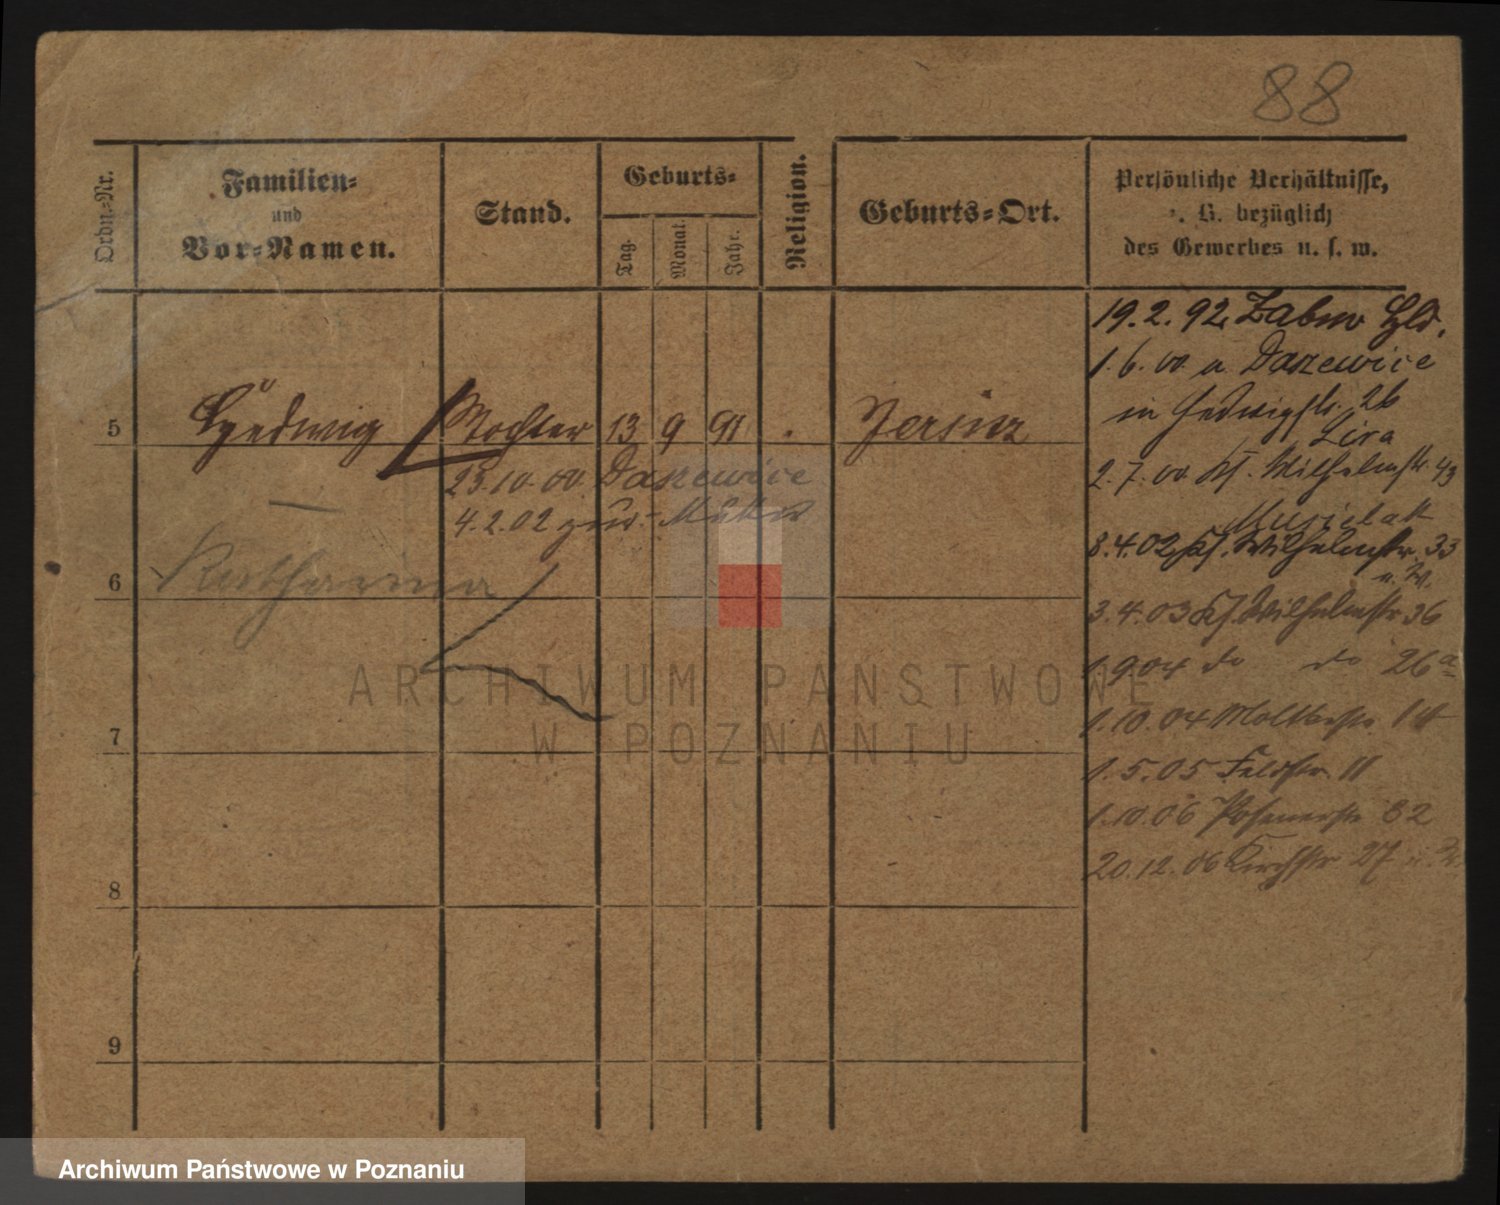 88
Ordn.-Nr.
Familien-
und
Vor-Namen.
Stand.
Geburts-
Tag.
Monat.
Jahr.
Religion.
Geburts-Ort.
Persönliche Verhältnisse,
z. B. bezüglich
des Gewerbes u. s. w.
19.2.92 Zabno Hld.
1.6.00 u Daszewice
in Hedwigstr. 26
Lira
2.7.00 Wilhelmstr. 43
Musielak
8.4.02 Wilhelmstr. 33
3.4.03 Wilhelmstr. 36
1.9.04 do do 26a
1.10.04 Moltkestr. 14
1.5.05 Feldstr. 11
1.10.06 Posenerstr. 32
20.12.06 Kirchstr. 27
5 Hedwig Tochter 13 9 91 Jersitz
23.10.00. Daszewice
4.2.02 zur Mutter
6 Katharina
7
8
9
ARCHIWUM PAŃSTWOWE
W POZNANIU
Archiwum Państwowe w Poznaniu